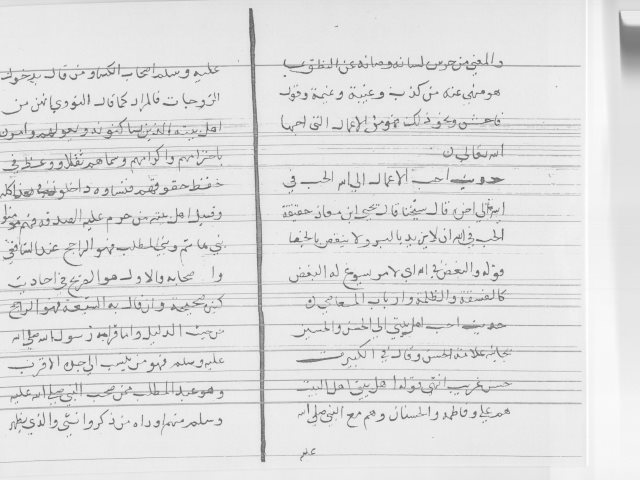 والمعنى من حرس لسانه وصانه عن النطق بما
هو منهي عنه من كذب وغيبة ونميمة وقول
فاحش ونحو ذلك فهو من الاعمال التي احبها
الله تعالى
حديث احب الاعمال الى الله الحب في
الله قال شيخنا قال يحيى ابن معاذ حقيقة
الحب في الله ان لا يزيد بالبر ولا ينقص بالجفا
قوله والبغض في الله اي لامر يسوغ له البغض
كالفسقة والظلمة وارباب المعاصي
حديث احب اهل بيتي الي الحسن والحسين
بجانبه علامة الحسن وقال في الكبير ت
حسن غريب انتهى قوله اهل بيتي اهل البيت
هم علي وفاطمة والحسنان وهم مع النبي صلى الله
عليه وسلم اصحاب الكساء ومن قال بدخول
الزوجات فالمراد كما قال النووي انهن من
اهل بيته الذين يساكنونه ويعولهم وامر
باحترامهم واكرامهم وسماهم ثقلا ووعظ في
حفظ حقوقهم فنساؤه داخلون
وقيل اهل بيته من حرم عليه الصدقة فهم مؤمنو
بني هاشم وبني المطلب فهو الراجح عند الشافعي
واصحابه والاول هو الصريح في احاديث
كثيرة صحيحة وان قال به الشيعة فهو الراجح
من حيث الدليل واما قرابة رسول الله صلى الله
عليه وسلم فهو من ينسب الى جده الاقرب
وهو عبد المطلب ممن صحب النبي صلى الله عليه
وسلم منهم او رآه من ذكر وانثى والذي يظهر